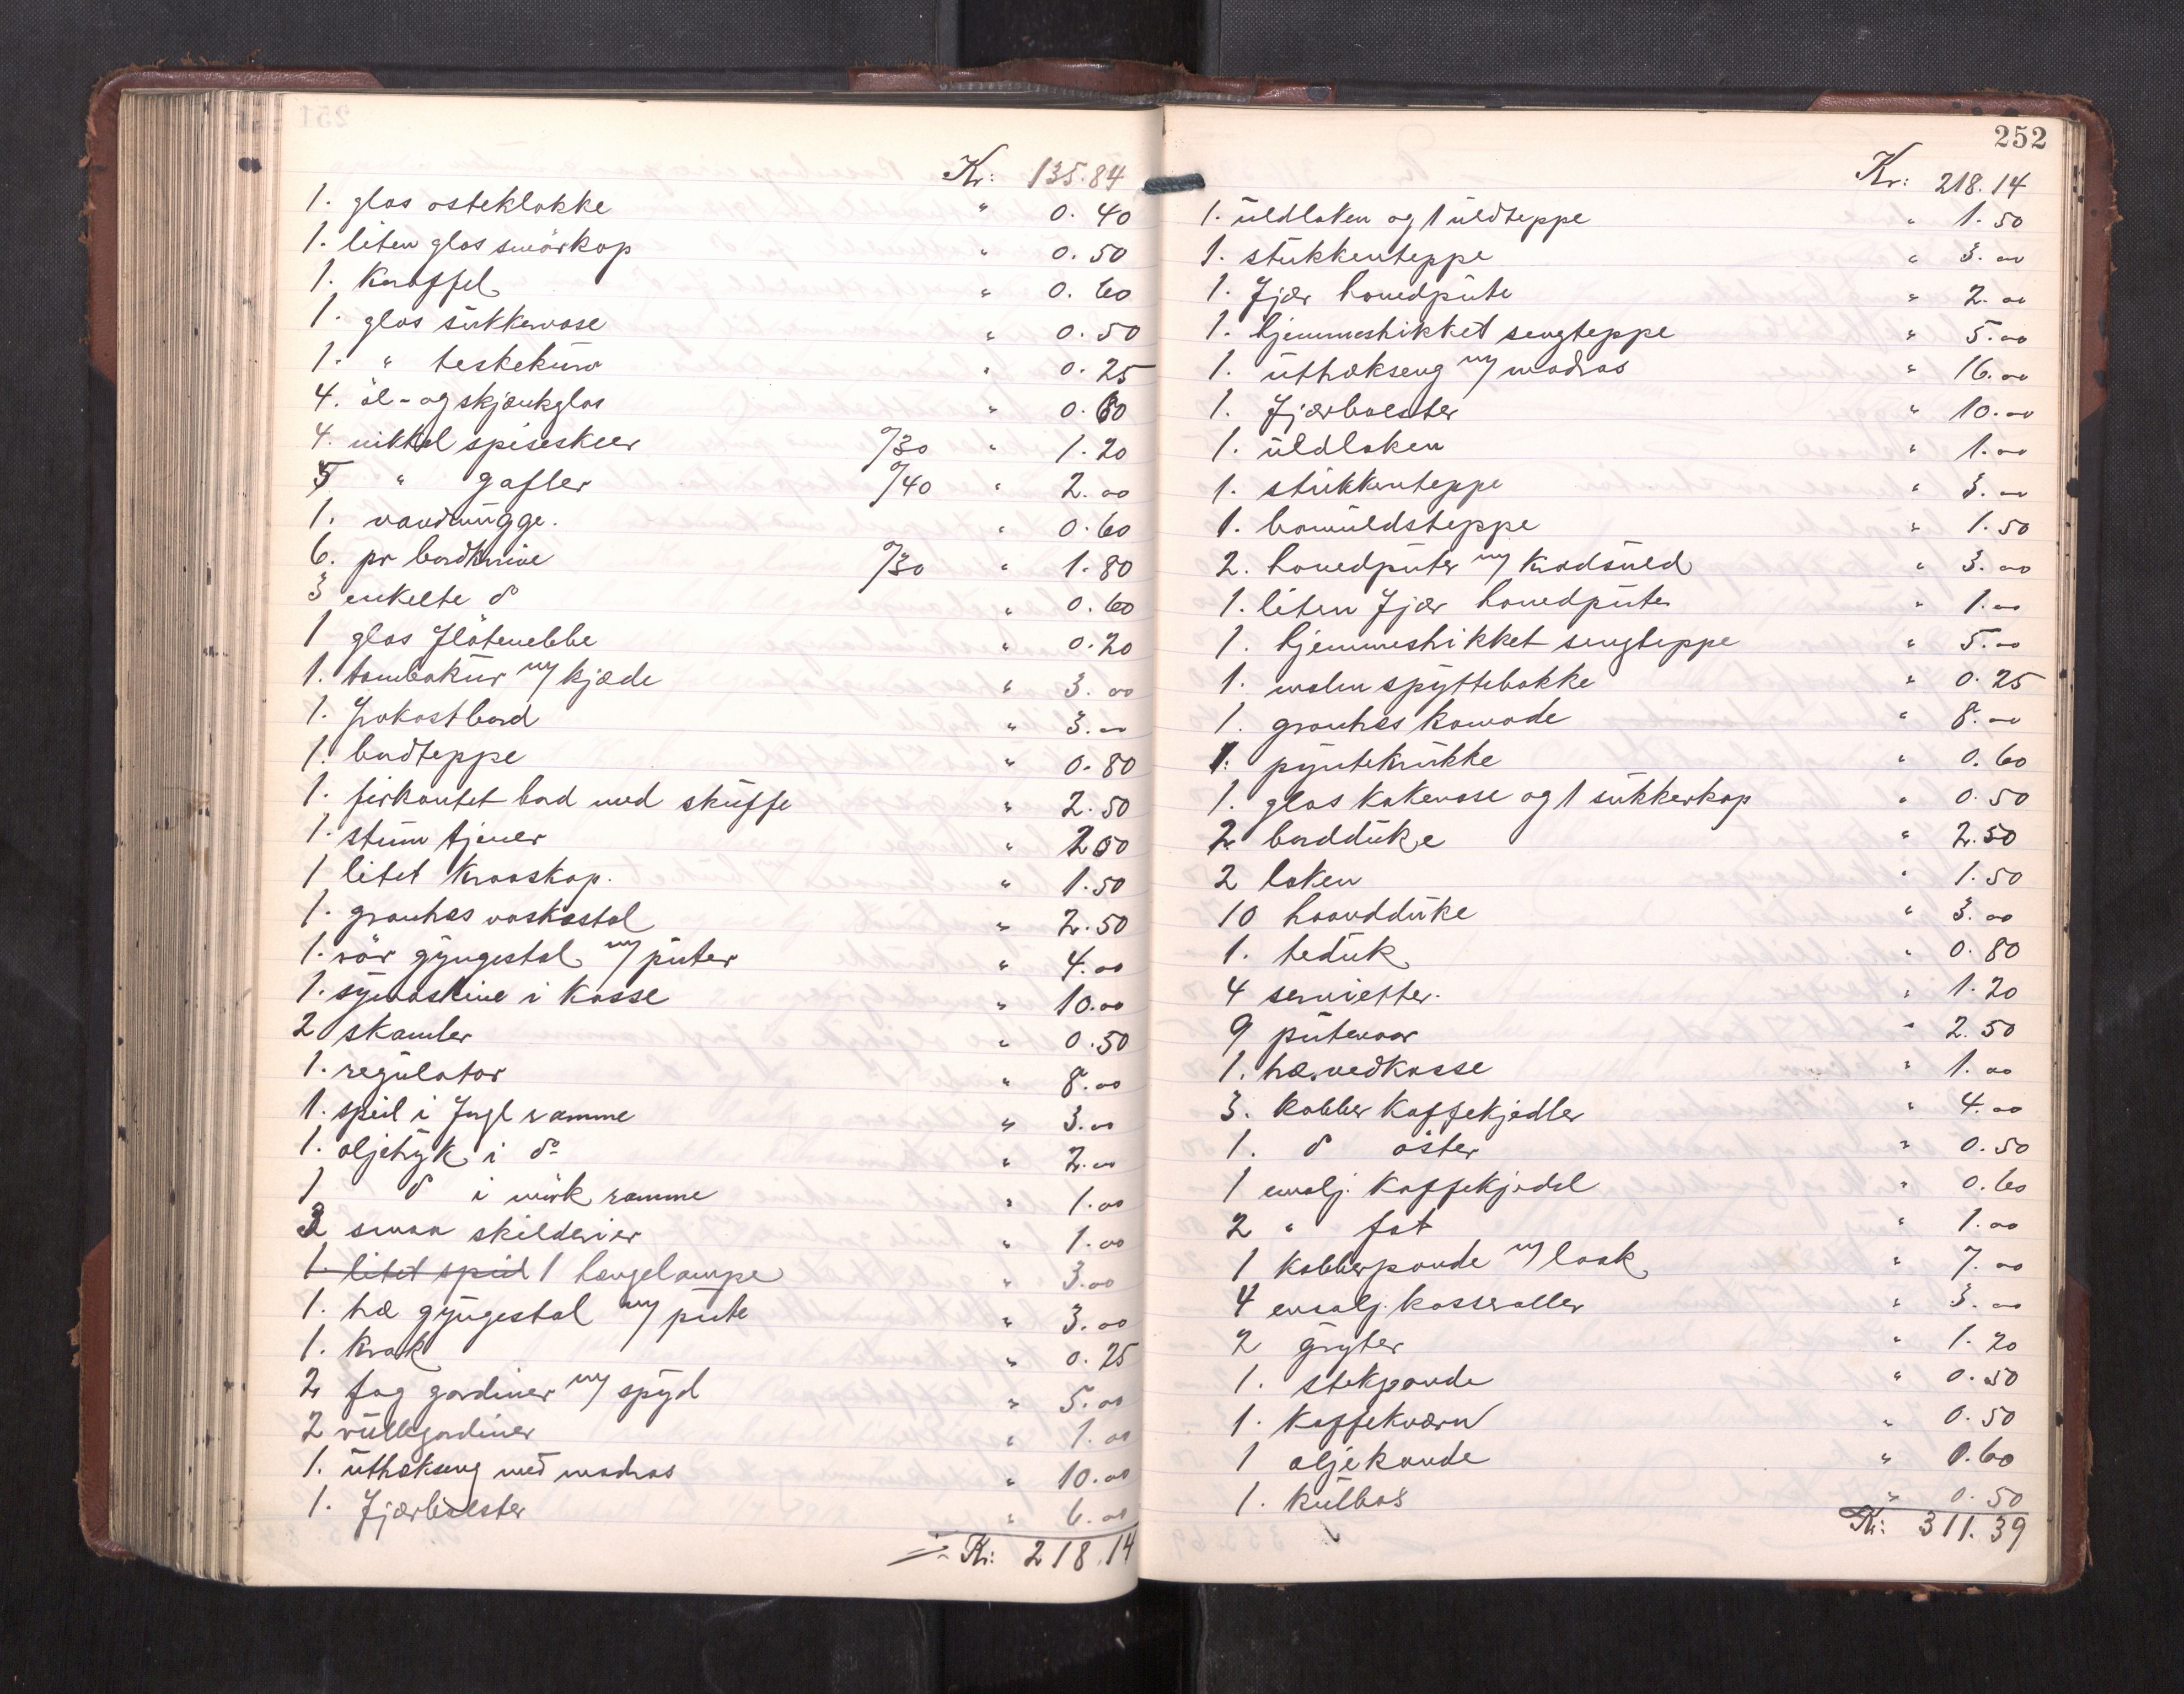 Kr: 135.84
1. glas osteklokke " 0.40
1. liten glas smørkop " 0.50
1. Karaffel " 0.60
1. glas sukkervase " 0.50
1. " teskekurv " 0.25
4. øl- og skjænkglas " 0.60
4. nikkel spiseskeer %30 " 1.20
5 " gafler %40 " 2.00
1. vandmugge. " 0.60
6. pr bordknive %30 " 1.80
3 enkelte do " 0.60
1 glas fløtenebbe " 0.20
1. tombakur m/ kjæde " 3.00
1. frokostbord " 3.00
1. bordteppe " 0.80
1. firkantet bord med skuffe " 2.50
1. stum tjener " 2.50
1 litet kroaskap. " 1.50
1. grantræs vaskestol " 2.50
1. rør gyngestol m/ puter " 4.00
1. symaskine i kasse " 10.00
2 skamler " 0.50
1. regulator " 8.00
1. speil i forgl ramme " 3.00
1. oljetryk i do " 2.00
1 do i mørk ramme " 1.00
3 smaa skilderier " 1.00
1. litet speil 1 hengelampe " 3.00
1. træ gyngestol m/ pute " 3.00
1. Krak " 0.25
2 fag gardiner m/ spyd " 5.00
2 rullegardiner " 1.00
1. uttrækseng med madras " 10.00
1. Fjærbolster " 6.00
Kr: 218.14
252
Kr: 218.14
1. uldlaken og 1 uldteppe " 1.50
1. stukkenteppe " 3.00
1. Fjær hovedpute " 2.00
1. hjemmestrikket sengteppe " 5.00
1. uttrækseng m/ madras " 16.00
1. Fjærbolster " 10.00
1. uldlaken " 1.00
1. stukkenteppe " 3.00
1. bomuldsteppe " 1.50
2. hovedputer m/ kradsuld " 3.00
1. liten Fjær hovedpute " 1.00
1. hjemmestrikket sengteppe " 5.00
1. malen spyttebakke " 0.25
1. grantræs komode " 8.00
1. pyntekrukke " 0.60
1. glas kakevase og 1 sukkerkop " 0.50
2 bordduke " 2.50
2 laken " 1.50
10 haandduke " 3.00
1. teduk " 0.80
4 servietter. " 1.20
9 putevaar " 2.50
1. træ.vedkasse " 1.00
3. Kobber kaffekjedler " 4.00
1. do øster " 0.50
1 emalj. kaffekjedel " 0.60
2 " fat " 1.00
1 kobberpande m/ laak " 7.00
4 emalj. kasseroller " 3.00
2 gryter " 1.20
1. stekpande " 0.50
1. Kaffekværn " 0.50
1 oljekande " 0.60
1. Kulbas " 0.50
Kr: 311.39